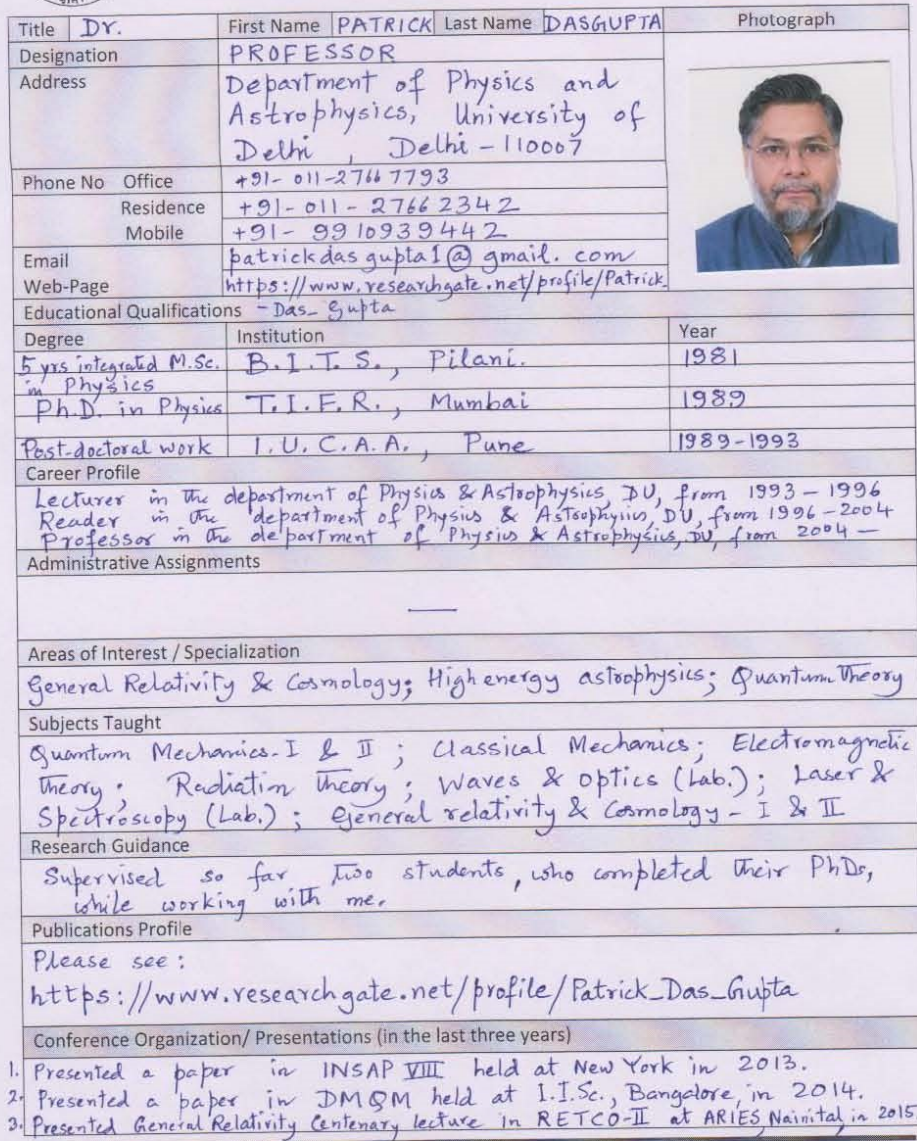 Title Dr. First Name PATRICK Last Name DASGUPTA Photograph
Designation PROFESSOR
Address Department of Physics and
Astrophysics, University of
Delhi, Delhi - 110007
Phone No Office +91-011-27667793
Residence +91-011-27662342
Mobile +91-9910939442
Email patrickdasgupta1@gmail.com
Web-Page https://www.researchgate.net/profile/Patrick_
Educational Qualifications - Das_ Gupta
Degree Institution Year
5 yrs integrated M.Sc. B.I.T.S., Pilani. 1981
in Physics
Ph.D. in Physics T.I.F.R., Mumbai 1989
Post-doctoral work I.U.C.A.A., Pune 1989-1993
Career Profile
Lecturer in the department of Physics & Astrophysics, DU, from 1993 - 1996
Reader in the department of Physics & Astrophysics, DU, from 1996-2004
Professor in the department of Physics & Astrophysics, DU, from 2004 -
Administrative Assignments
—
Areas of Interest / Specialization
General Relativity & Cosmology; High energy astrophysics; Quantum Theory
Subjects Taught
Quantum Mechanics-I & II; Classical Mechanics; Electromagnetic
theory; Radiation theory; Waves & Optics (Lab.); Laser &
Spectroscopy (Lab.); General relativity & Cosmology - I & II
Research Guidance
Supervised so far two students, who completed their PhDs,
while working with me.
Publications Profile
Please see:
https://www.researchgate.net/profile/Patrick_Das_Gupta
Conference Organization/ Presentations (in the last three years)
1. Presented a paper in INSAP VIII held at New York in 2013.
2. Presented a paper in DMQM held at I.I.Sc., Bangalore, in 2014.
3. Presented General Relativity Centenary lecture in RETCO-II at ARIES, Nainital in 2015